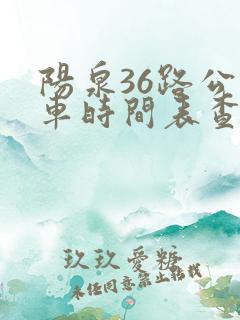 陽泉36路公
車時間表查
玖玖愛糖
未任同意禁止轉載